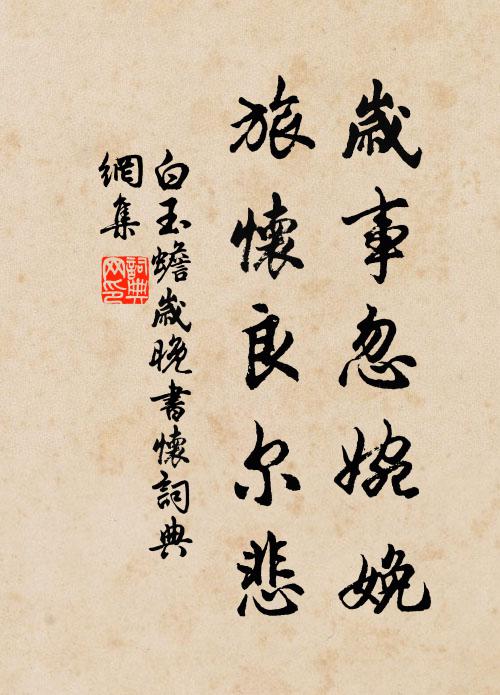 歲事忽婉娩
旅懷良尔悲
白玉蟾歲晚書懷詞典
網集
詞典網印